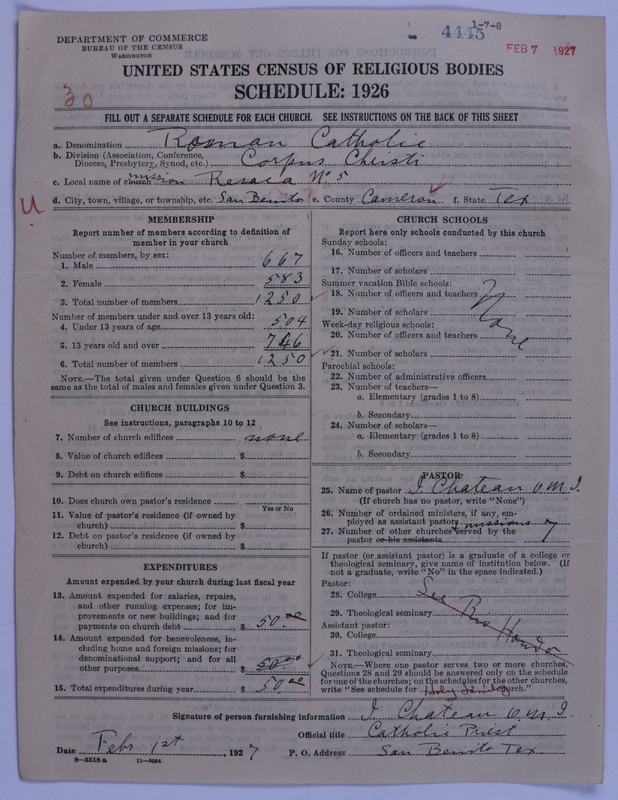 1-7-8
4445
FEB 7 1927
DEPARTMENT OF COMMERCE
BUREAU OF THE CENSUS
WASHINGTON
UNITED STATES CENSUS OF RELIGIOUS BODIES
SCHEDULE: 1926
30
FILL OUT A SEPARATE SCHEDULE FOR EACH CHURCH. SEE INSTRUCTIONS ON THE BACK OF THIS SHEET
a. Denomination Roman Catholic
b. Division (Association, Conference, Diocese, Presbytery, Synod, etc.) Corpus Christi
c. Local name of church mission Resaca No 5
U d. City, town, village, or township, etc. San Benito e. County Cameron f. State Tex
MEMBERSHIP
Report number of members according to definition of
member in your church
Number of members, by sex:
1. Male 667
2. Female 583
3. Total number of members 1250
Number of members under and over 13 years old:
4. Under 13 years of age 504
5. 13 years old and over 746
6. Total number of members 1250
NOTE.—The total given under Question 6 should be the
same as the total of males and females given under Question 3.
CHURCH BUILDINGS
See instructions, paragraphs 10 to 12
7. Number of church edifices none
8. Value of church edifices $
9. Debt on church edifices $
10. Does church own pastor's residence
Yes or No
11. Value of pastor's residence (if owned by
church) $
12. Debt on pastor's residence (if owned by
church) $
EXPENDITURES
Amount expended by your church during last fiscal year
13. Amount expended for salaries, repairs,
and other running expenses; for im-
provements or new buildings; and for
payments on church debt $ 50.00
14. Amount expended for benevolences, in-
cluding home and foreign missions; for
denominational support; and for all
other purposes $ 50.00
15. Total expenditures during year $ 50.00
CHURCH SCHOOLS
Report here only schools conducted by this church
Sunday schools:
16. Number of officers and teachers
17. Number of scholars
Summer vacation Bible schools:
18. Number of officers and teachers
None
19. Number of scholars
Week-day religious schools:
20. Number of officers and teachers
21. Number of scholars
Parochial schools:
22. Number of administrative officers
23. Number of teachers—
a. Elementary (grades 1 to 8)
b. Secondary
24. Number of scholars—
a. Elementary (grades 1 to 8)
b. Secondary
PASTOR
25. Name of pastor I. Chateau O M I
(If church has no pastor, write "None")
26. Number of ordained ministers, if any, em-
ployed as assistant pastors
27. Number of other churches & missions served by the
pastor or his assistants 7
If pastor (or assistant pastor) is a graduate of a college or
theological seminary, give name of institution below. (If
not a graduate, write "No" in the space indicated.)
Pastor:
28. College See Rio Hondo
29. Theological seminary
Assistant pastor:
30. College
31. Theological seminary
NOTE.—Where one pastor serves two or more churches,
Questions 28 and 29 should be answered only on the schedule
for one of the churches; on the schedules for the other churches,
write "See schedule for Holy Family church."
Signature of person furnishing information I. Chateau O. M. I
Official title Catholic Priest
Date Feb. 1st, 1927 P. O. Address San Benito Tex
8—5516 a 11—9024